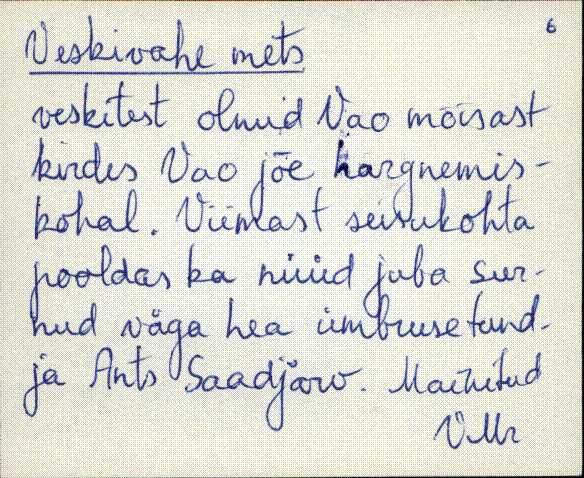 6
Veskivahe mets
veskitest olnud Vao mõisast
kirdes Vao jõe hargnemis-
kohal. Viimast seisukohta
pooldas ka nüüd juba sur-
nud väga hea ümbrusetund-
ja Ants Saadjärv. Mainitud